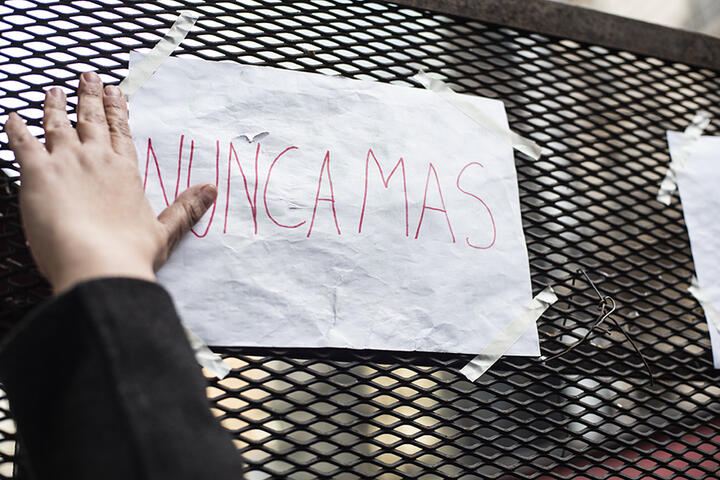 NUNCA MAS